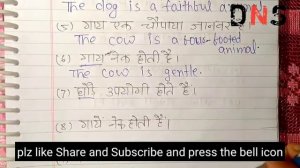 The dog is a faithful an
(5) गाय एक चौपाया जानवर
The cow is a four-footed
animal.
(6) गाय नेक होती है।
The cow is gentle.
(7) घोड़े उपयोगी होते हैं।
(8) गायें नेक होती हैं।
DNS
plz like Share and Subscribe and press the bell icon